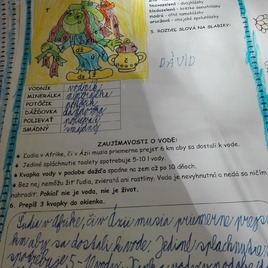 bezoseleni - dvojhlásky
modrá - dlhé samohlásky
oranžová - obojaké spoluhlásky
5. ROZDEĽ SLOVÁ NA SLABIKY:
DÁVID
VODNÍK vodník
MINERÁLKA minerálka
POTÔČIK potôčik
DÁŽĎOVKA dážďovka
POLIEVAŤ polievať
SMÄDNÝ smädný
ZAUJÍMAVOSTI O VODE:
Ľudia v Afrike, či v Ázii musia priemerne prejsť 6 km aby sa dostali k vode.
Jediné spláchnutie toalety spotrebuje 5-10 l vody.
Kvapka vody v podobe dažďa spadne na zem až po 10 dňoch.
Bez nej nemôžu žiť ľudia, zvieratá ani rastliny. Voda je nevyhnutná a nedá sa ničím
nahradiť. Pokiaľ nie je voda, nie je život.
6. Prepíš 3 kvapky do okienka.
Ľudia v Afrike, či v Ázii musia priemerne prejsť
km aby sa dostali k vode. Jediné spláchnutie
spotrebuje 5-10 vody.